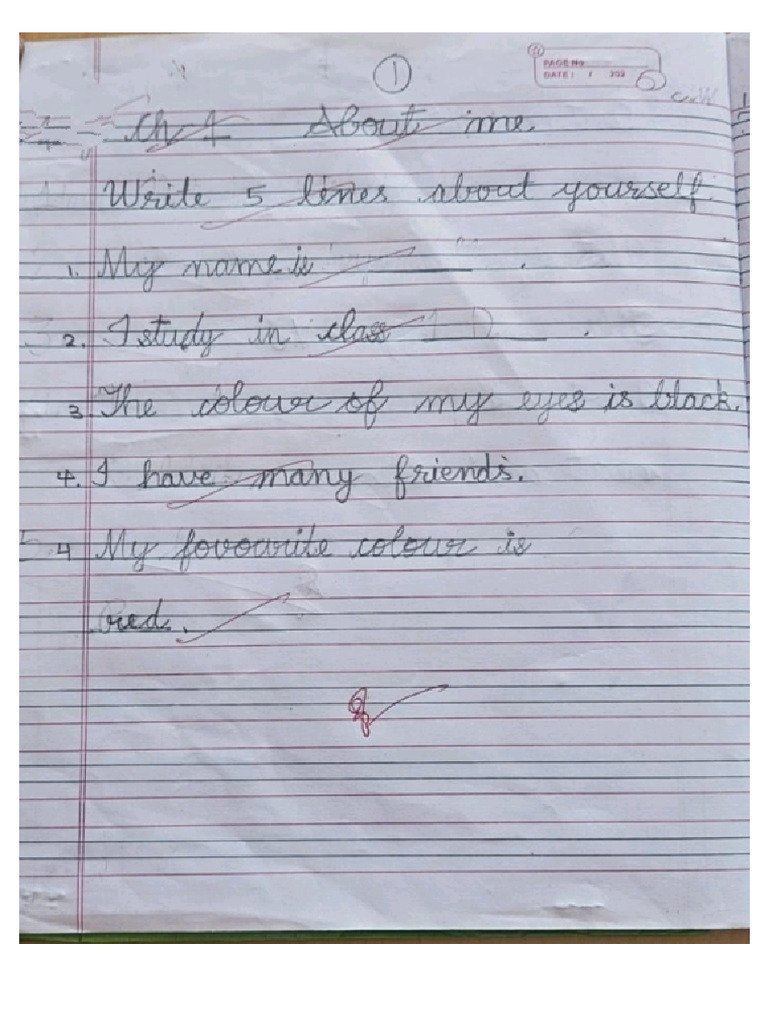 1
PAGE No.
DATE: / 202
Ch 1 About me.
Write 5 lines about yourself.
1. My name is ______ .
2. I study in class 1 D .
3 The colour of my eyes is black.
4. I have many friends.
4 My fovourite colour is
red.